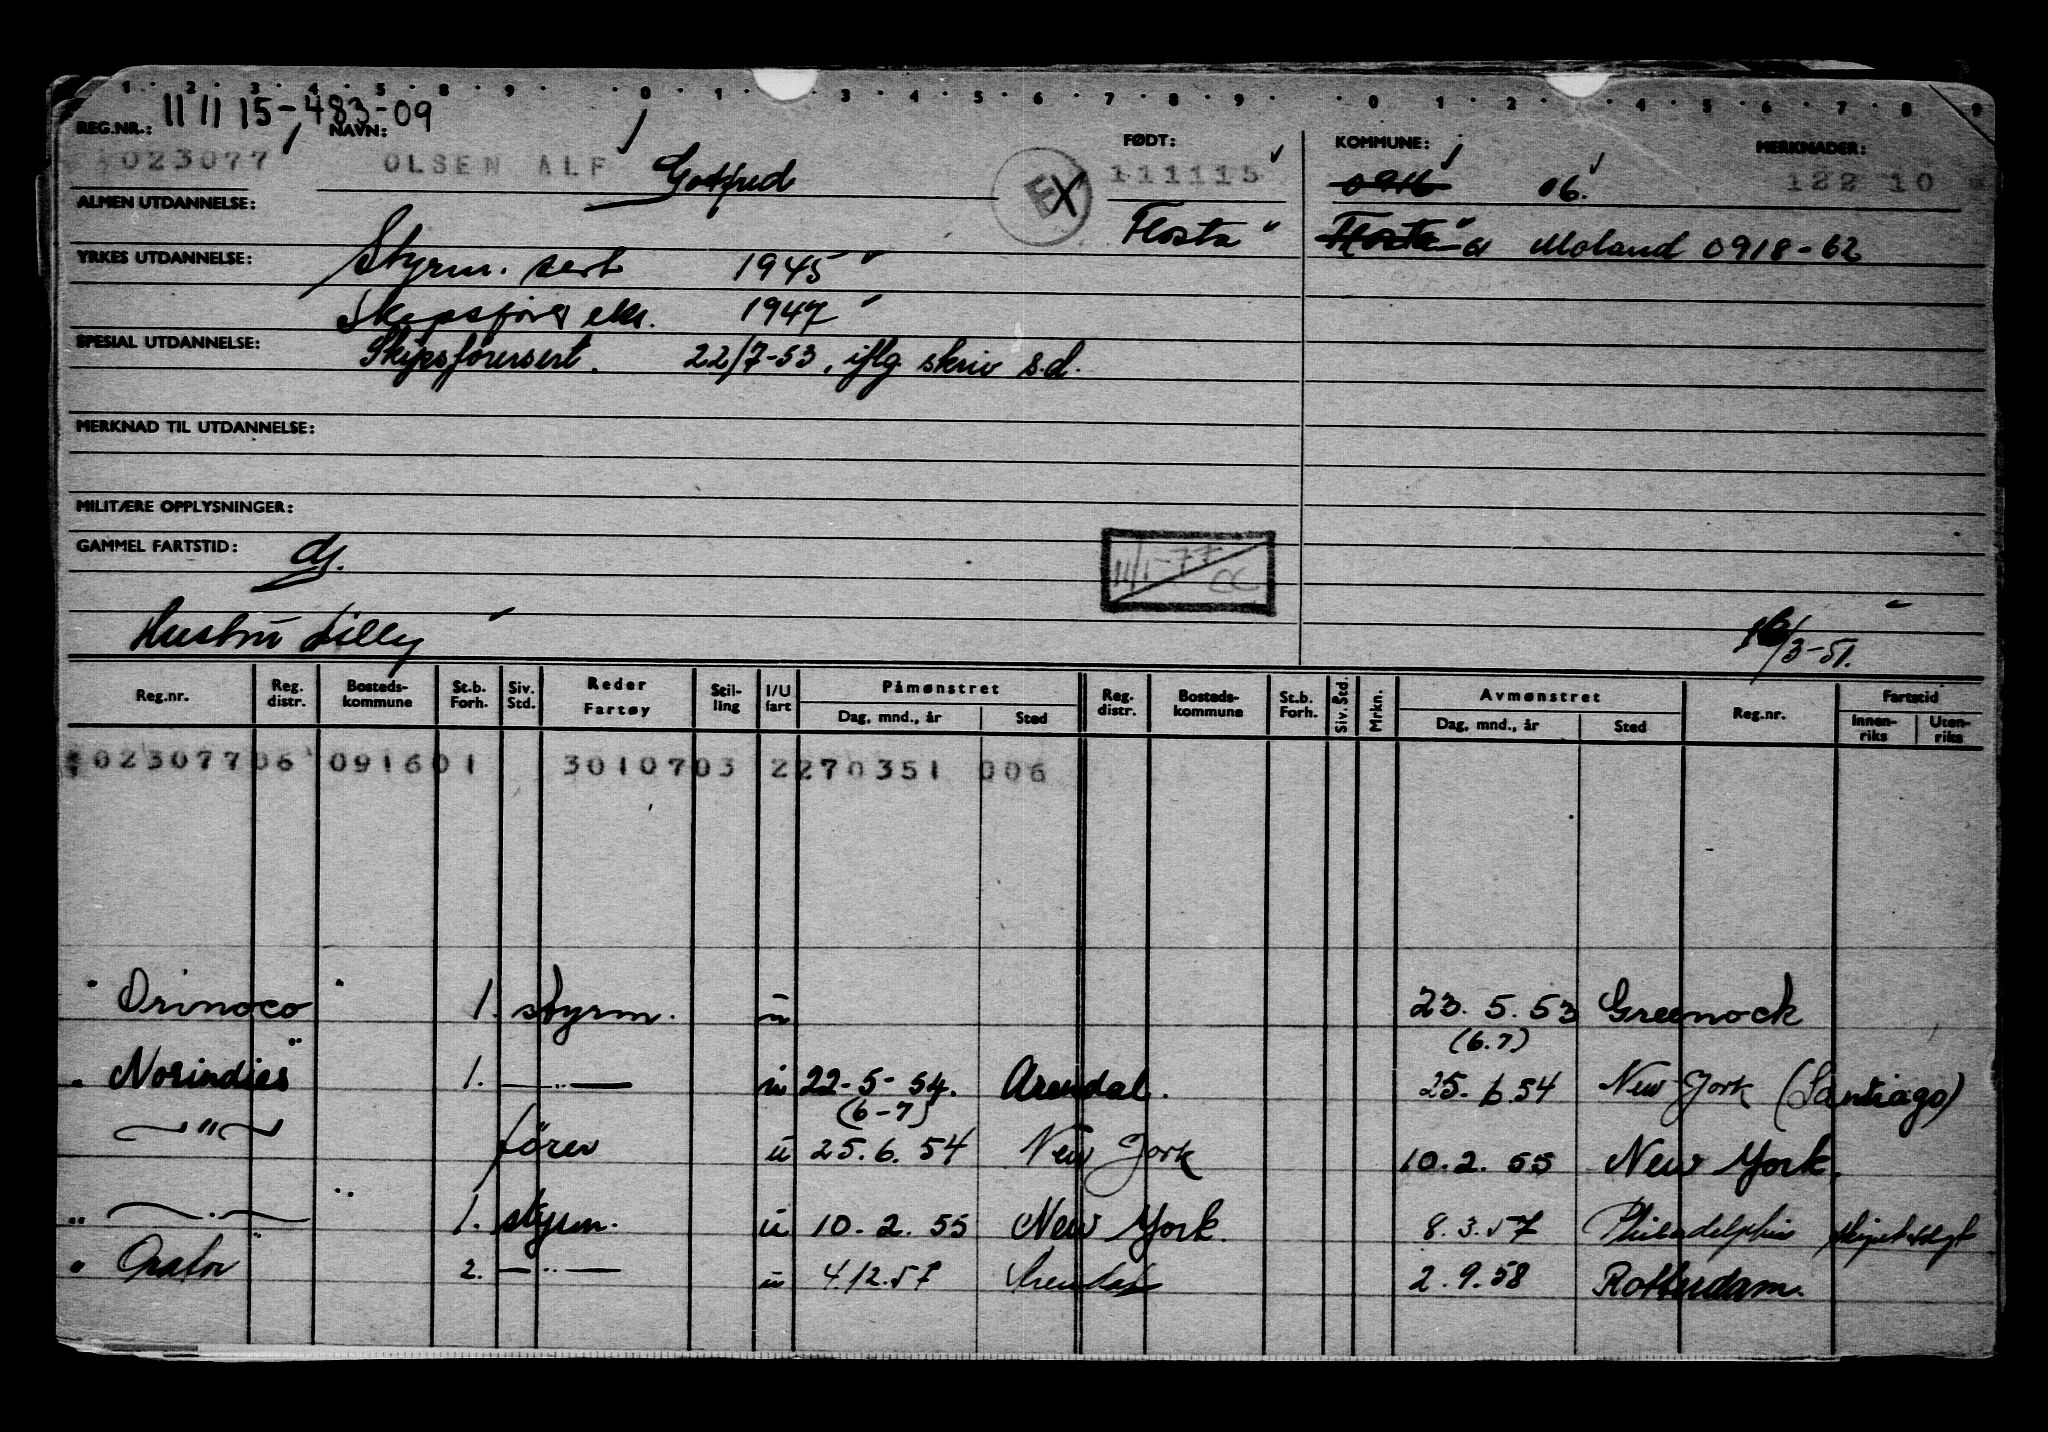 1 2 3 4 5 8 9 0 3 4 5 6 7 8 9 0 1 2 4 5 6 7 8 9
11 11 15-483-09
REG.NR.: NAVN: FØDT: KOMMUNE: MERKNADER:
023077 OLSEN ALF Gotfred EX 111115 0916 06. 122 10
ALMEN UTDANNELSE: Flosta Flosta Moland 0918-62
YRKES UTDANNELSE: Styrm. sert 1945
Skipsfører eks. 1947
SPESIAL UTDANNELSE: Skipsførersert. 22/7-53, iflg. skriv s.d.
MERKNAD TIL UTDANNELSE:
MILITÆRE OPPLYSNINGER:
GAMMEL FARTSTID: dj. 11/1-77 OC
Hustru Lilly 16/3-51.
Reg.nr. Reg. distr. Bosteds-kommune St.b. Forh. Siv. Std. Reder Fartøy Stil-ling I/U fart Påmønstret Dag, mnd., år Sted Reg. distr. Bosteds-kommune St.b. Forh. Siv. Std. Mrkn. Avmønstret Dag, mnd., år Sted Reg.nr. Fartstid Innen-riks Uten-riks
023077 06 0916 01 3010703 2270351 006
" Orinoco " 1. styrm. u 23.5.53 Greenock
(6.7)
" Norindies " 1. —"— u 22-5-54. Arendal. 25.6.54 New York (Santiago)
(6-7)
—"— fører u 25.6.54 New York 10.2.55 New York.
" —"— " 1. styrm. u 10.2.55 New York. 8.3.57 Philadelphia skipet solgt
" Orator " 2. —"— u 4.12.57 Arendal 2.9.58 Rotterdam.